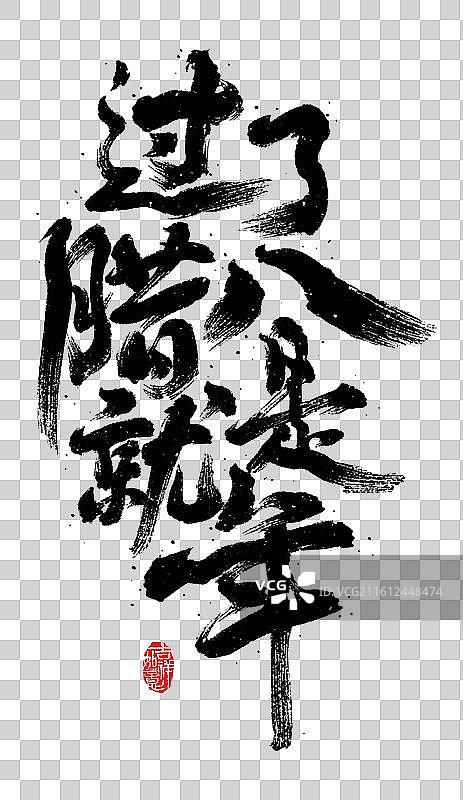 过了
腊八
就是
年
VCG
ID:VCG211612448474